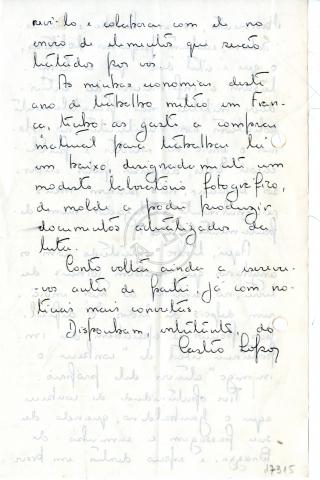 revi-lo, e colaborar com ele no
envio de elementos que serão
tratados por vós.
As minhas economias deste
ano de trabalho médico em Fran-
ça, tenho-as gasto a comprar
material para trabalhar lá
em baixo, designadamente um
modesto laboratório fotográfico,
de molde a poder produzir
documentos actualizados da
luta.
Conto voltar ainda a escrever-
-vos antes de partir, já com no-
tícias mais concretas.
Disponham, entretanto, do
Castro Lopo
17315